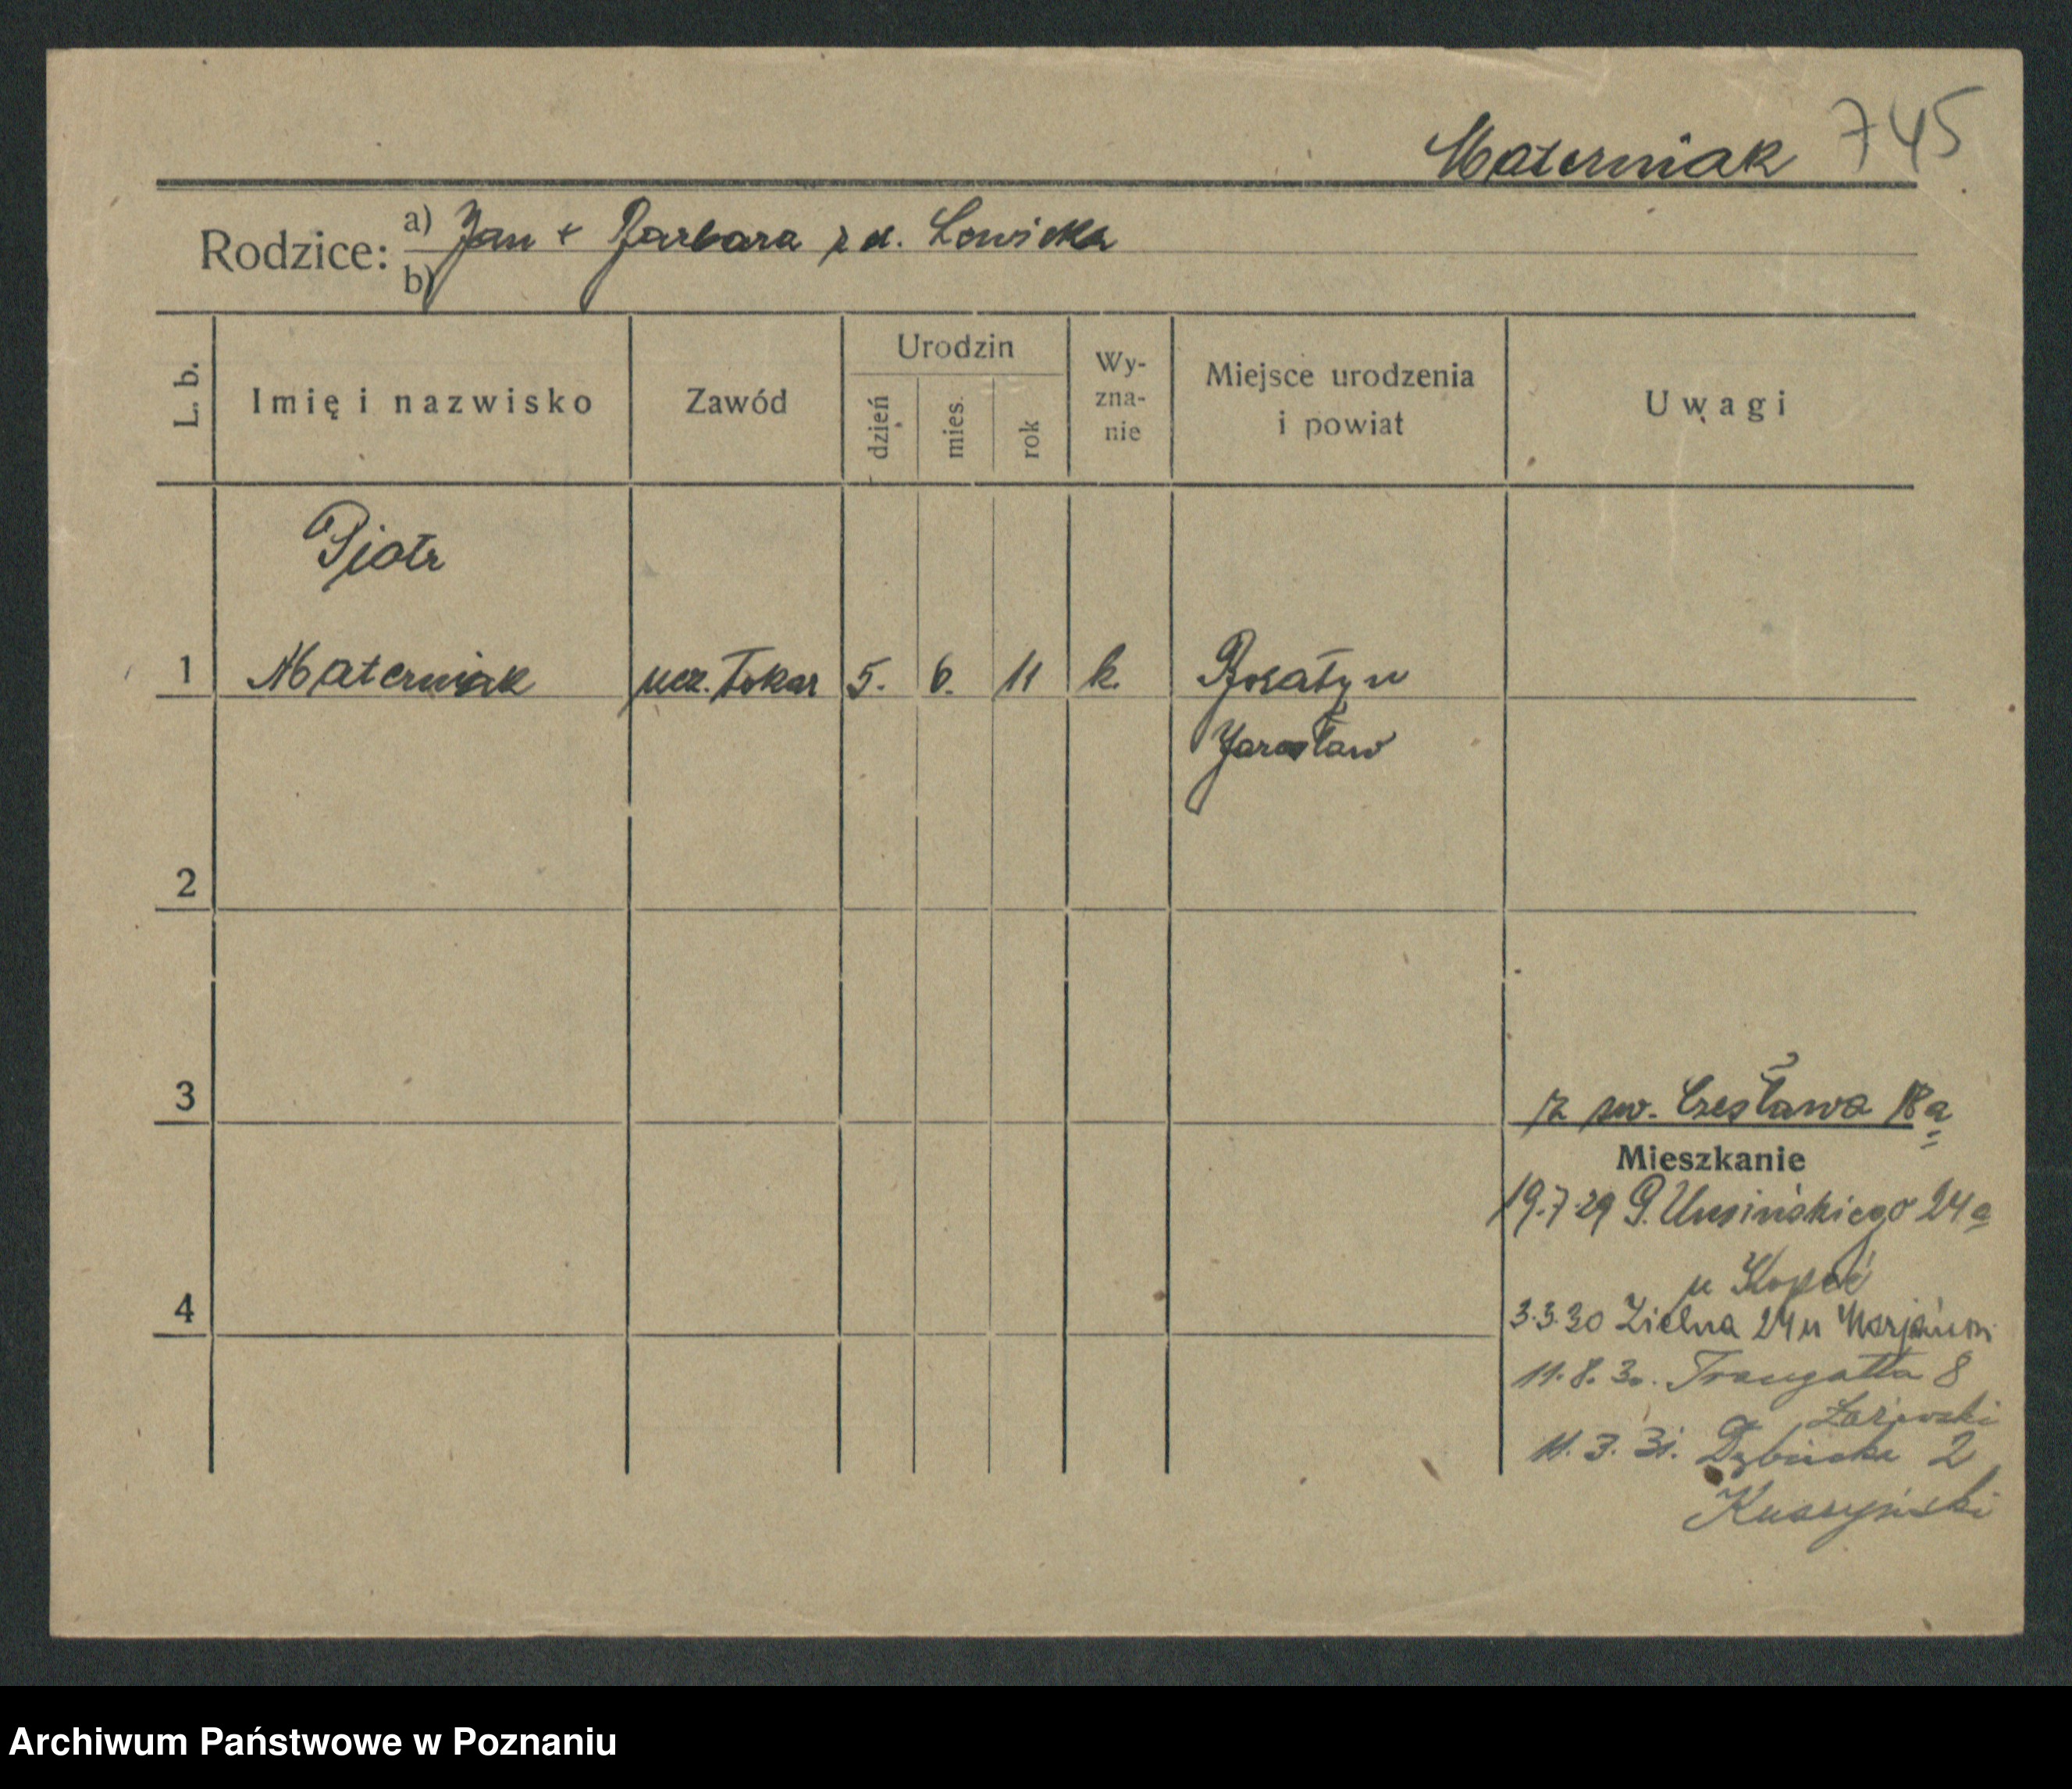 Materniak 745
Rodzice: a) Jan + Barbara z d. Lowicka
b)
L. b. Imię i nazwisko Zawód Urodzin dzień mies. rok Wy-zna-nie Miejsce urodzenia i powiat Uwagi
Piotr
1 Materniak ucz. tokar 5. 6. 11 k.
Jarosław
2
3
z św. Czesława 18a
Mieszkanie
19.7.29 G. Umińskiego 24a
u Kopeć
4
3.3.30 Zielna 24 u
11.8.30. Traugutta 8
11.3.31. Dębińska 2
Archiwum Państwowe w Poznaniu